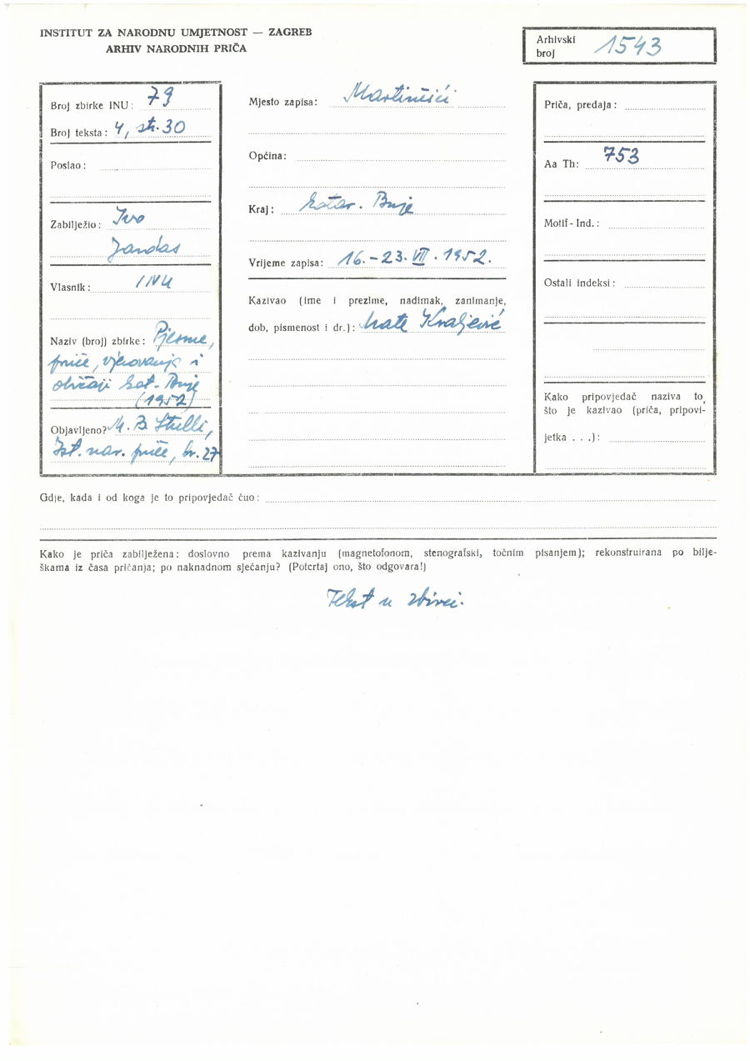 INSTITUT ZA NARODNU UMJETNOST — ZAGREB
ARHIV NARODNIH PRIČA
Arhivski
broj 1543
Broj zbirke INU: 79
Broj teksta: 4, str. 30
Poslao:
Zabilježio: Ivo
Jardas
Vlasnik: INU
Naziv (broj) zbirke: Pjesme,
priče, vjerovanja i
običaji kot. Buje
(1952)
Objavljeno? M. B. Stulli,
Ist. nar. priče, br. 27
Mjesto zapisa: Martinčići
Općina:
Kraj: kotar. Buje
Vrijeme zapisa: 16.-23. VII. 1952.
Kazivao (ime i prezime, nadimak, zanimanje,
dob, pismenost i dr.): Mate Kraljević
Priča, predaja:
Aa Th: 753
Motif - Ind.:
Ostali indeksi:
Kako pripovjedač naziva to
što je kazivao (priča, pripovi-
jetka . . .):
Gdje, kada i od koga je to pripovjedač čuo:
Kako je priča zabilježena: doslovno prema kazivanju (magnetofonom, stenografski, točnim pisanjem); rekonstruirana po bilje-
škama iz časa pričanja; po naknadnom sjećanju? (Potcrtaj ono, što odgovara!)
Tekst u zbirci.